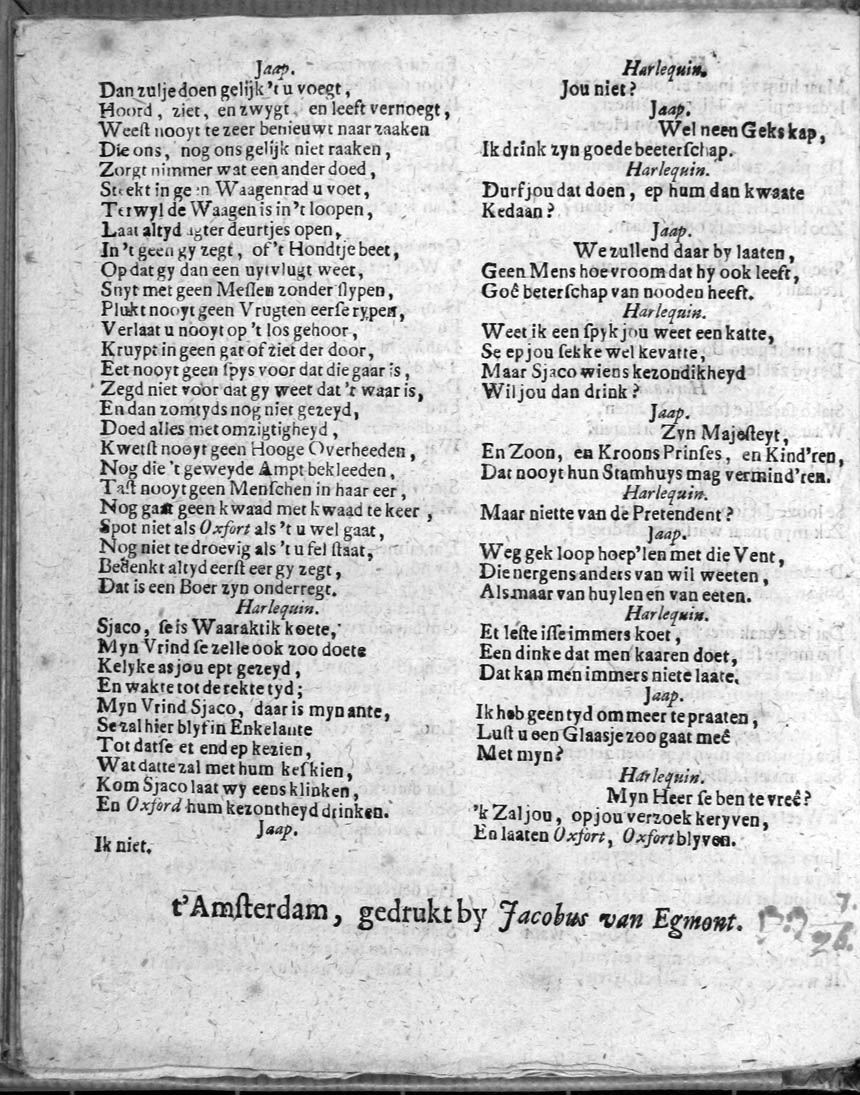 Jaap.
Dan zulje doen gelijk 't u voegt,
Hoord, ziet, en zwygt, en leeft vernoegt,
Weest nooyt te zeer benieuwt naar zaaken
Die ons, nog ons gelijk niet raaken,
Zorgt nimmer wat een ander doed,
Steekt in geen Waagenrad u voet,
Terwyl de Waagen is in 't loopen,
Laat altyd agter deurtjes open,
In 't geen gy zegt, of 't Hondtje beet,
Op dat gy dan een uytvlugt weet,
Snyt met geen Messen zonder slypen,
Plukt nooyt geen Vrugten eer se rypen,
Verlaat u nooyt op 't los gehoor,
Kruypt in geen gat of ziet der door,
Eet nooyt geen spys voor dat die gaar is,
Zegd niet voor dat gy weet dat 'r waar is,
En dan zomtyds nog niet gezeyd,
Doed alles met omzigtigheyd,
Kwetst nooyt geen Hooge Overheeden,
Nog die 't geweyde Ampt bekleeden,
Tast nooyt geen Menschen in haar eer,
Nog gaat geen kwaad met kwaad te keer,
Spot niet als Oxfort als 't u wel gaat,
Nog niet te droevig als 't u fel staat,
Bedenkt altyd eerst eer gy zegt,
Dat is een Boer zyn onderregt.
Harlequin.
Sjaco, se is Waaraktik koete,
Myn Vrind se zelle ook zoo doete
Kelyke as jou ept gezeyd,
En wakte tot de rekte tyd;
Myn Vrind Sjaco, daar is myn ante,
Se zal hier blyf in Enkelante
Tot datse et end ep kezien,
Wat datte zal met hum keskien,
Kom Sjaco laat wy eens klinken,
En Oxford hum kezontheyd drinken.
Jaap.
Ik niet.
Harlequin.
Jou niet?
Jaap.
Wel neen Gekskap,
Ik drink zyn goede beeterschap.
Harlequin.
Durf jou dat doen, ep hum dan kwaate
Kedaan?
Jaap.
We zullend daar by laaten,
Geen Mens hoe vroom dat hy ook leeft,
Goê beterschap van nooden heeft.
Harlequin.
Weet ik een spyk jou weet een katte,
Se ep jou sekke wel kevatte,
Maar Sjaco wiens kezondikheyd
Wil jou dan drink?
Jaap.
Zyn Majesteyt,
En Zoon, en Kroons Prinses, en Kind'ren,
Dat nooyt hun Stamhuys mag vermind'ren.
Harlequin.
Maar niette van de Pretendent?
Jaap.
Weg gek loop hoep'len met die Vent,
Die nergens anders van wil weeten,
Als maar van huylen en van eeten.
Harlequin.
Et leste isse immers koet,
Een dinke dat men kaaren doet,
Dat kan men immers niete laate.
Jaap.
Ik heb geen tyd om meer te praaten,
Lust u een Glaasje zoo gaat meê
Met myn?
Harlequin.
Myn Heer se ben te vreê?
'k Zal jou, op jou verzoek keryven,
En laaten Oxfort, Oxfort blyven.
t'Amsterdam, gedrukt by Jacobus van Egmont.